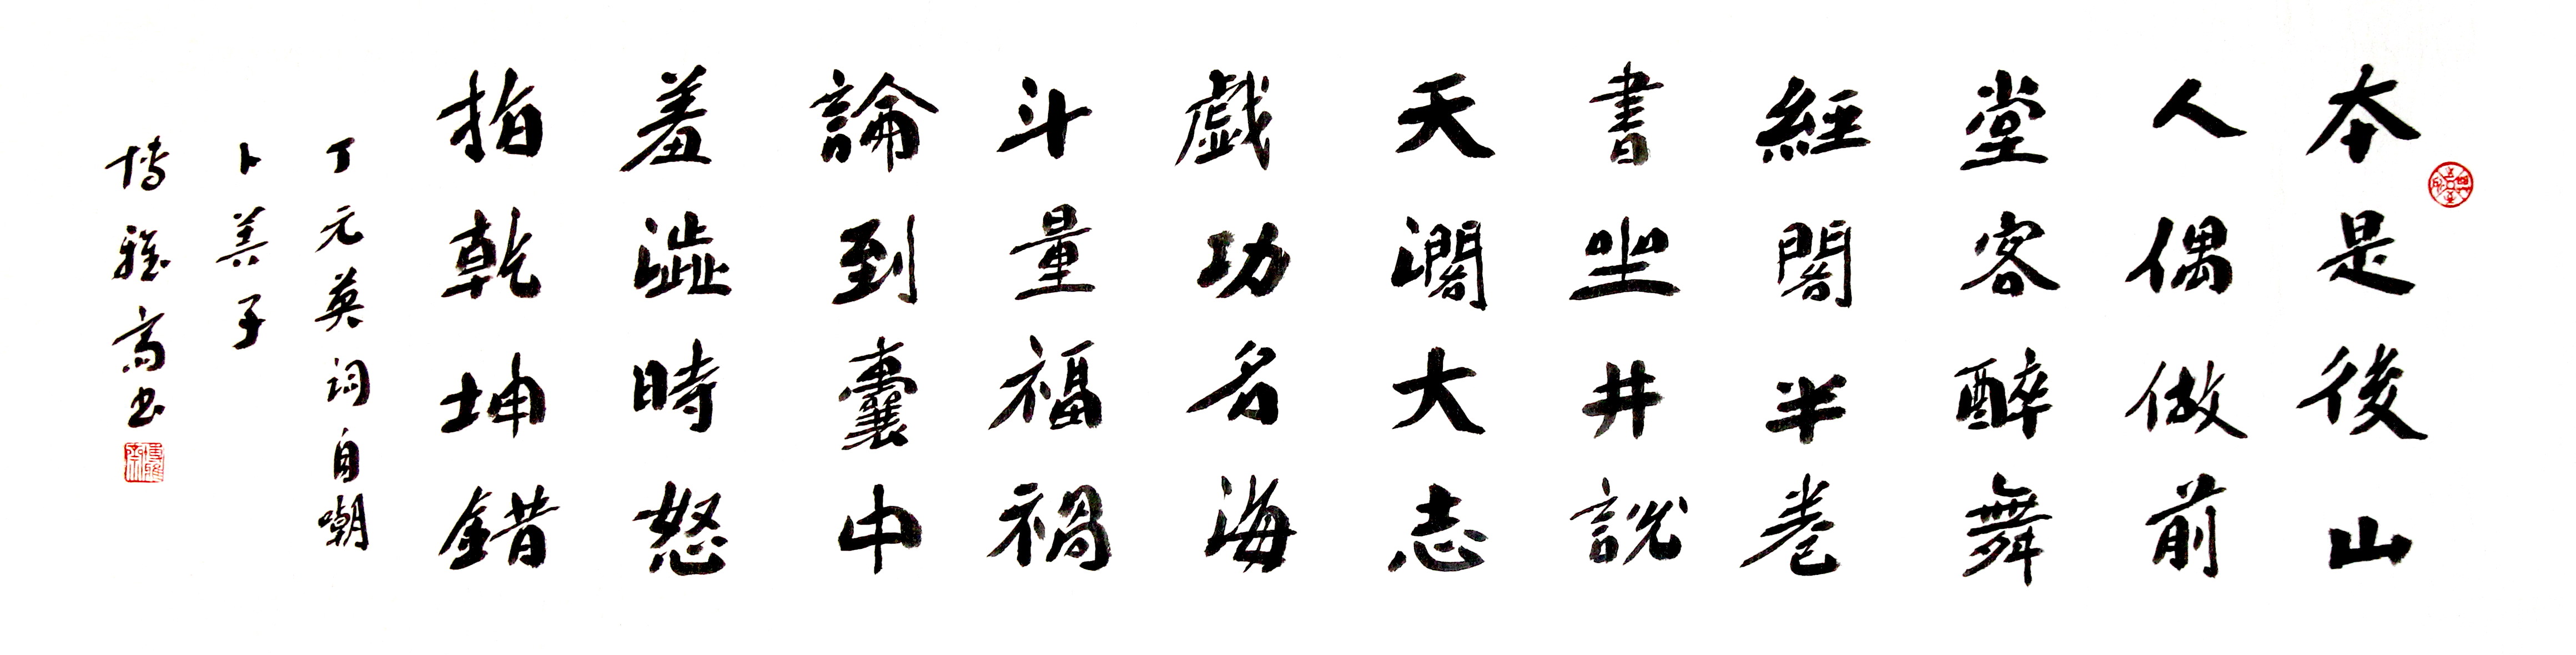 本是後山
人偶做前
堂客醉舞
經閣半卷
書坐井說
天濶大志
戯功名海
斗量福禍
論到囊中
羞澁時怒
指乾坤錯
丁元英詞自嘲
卜算子
博雅高书